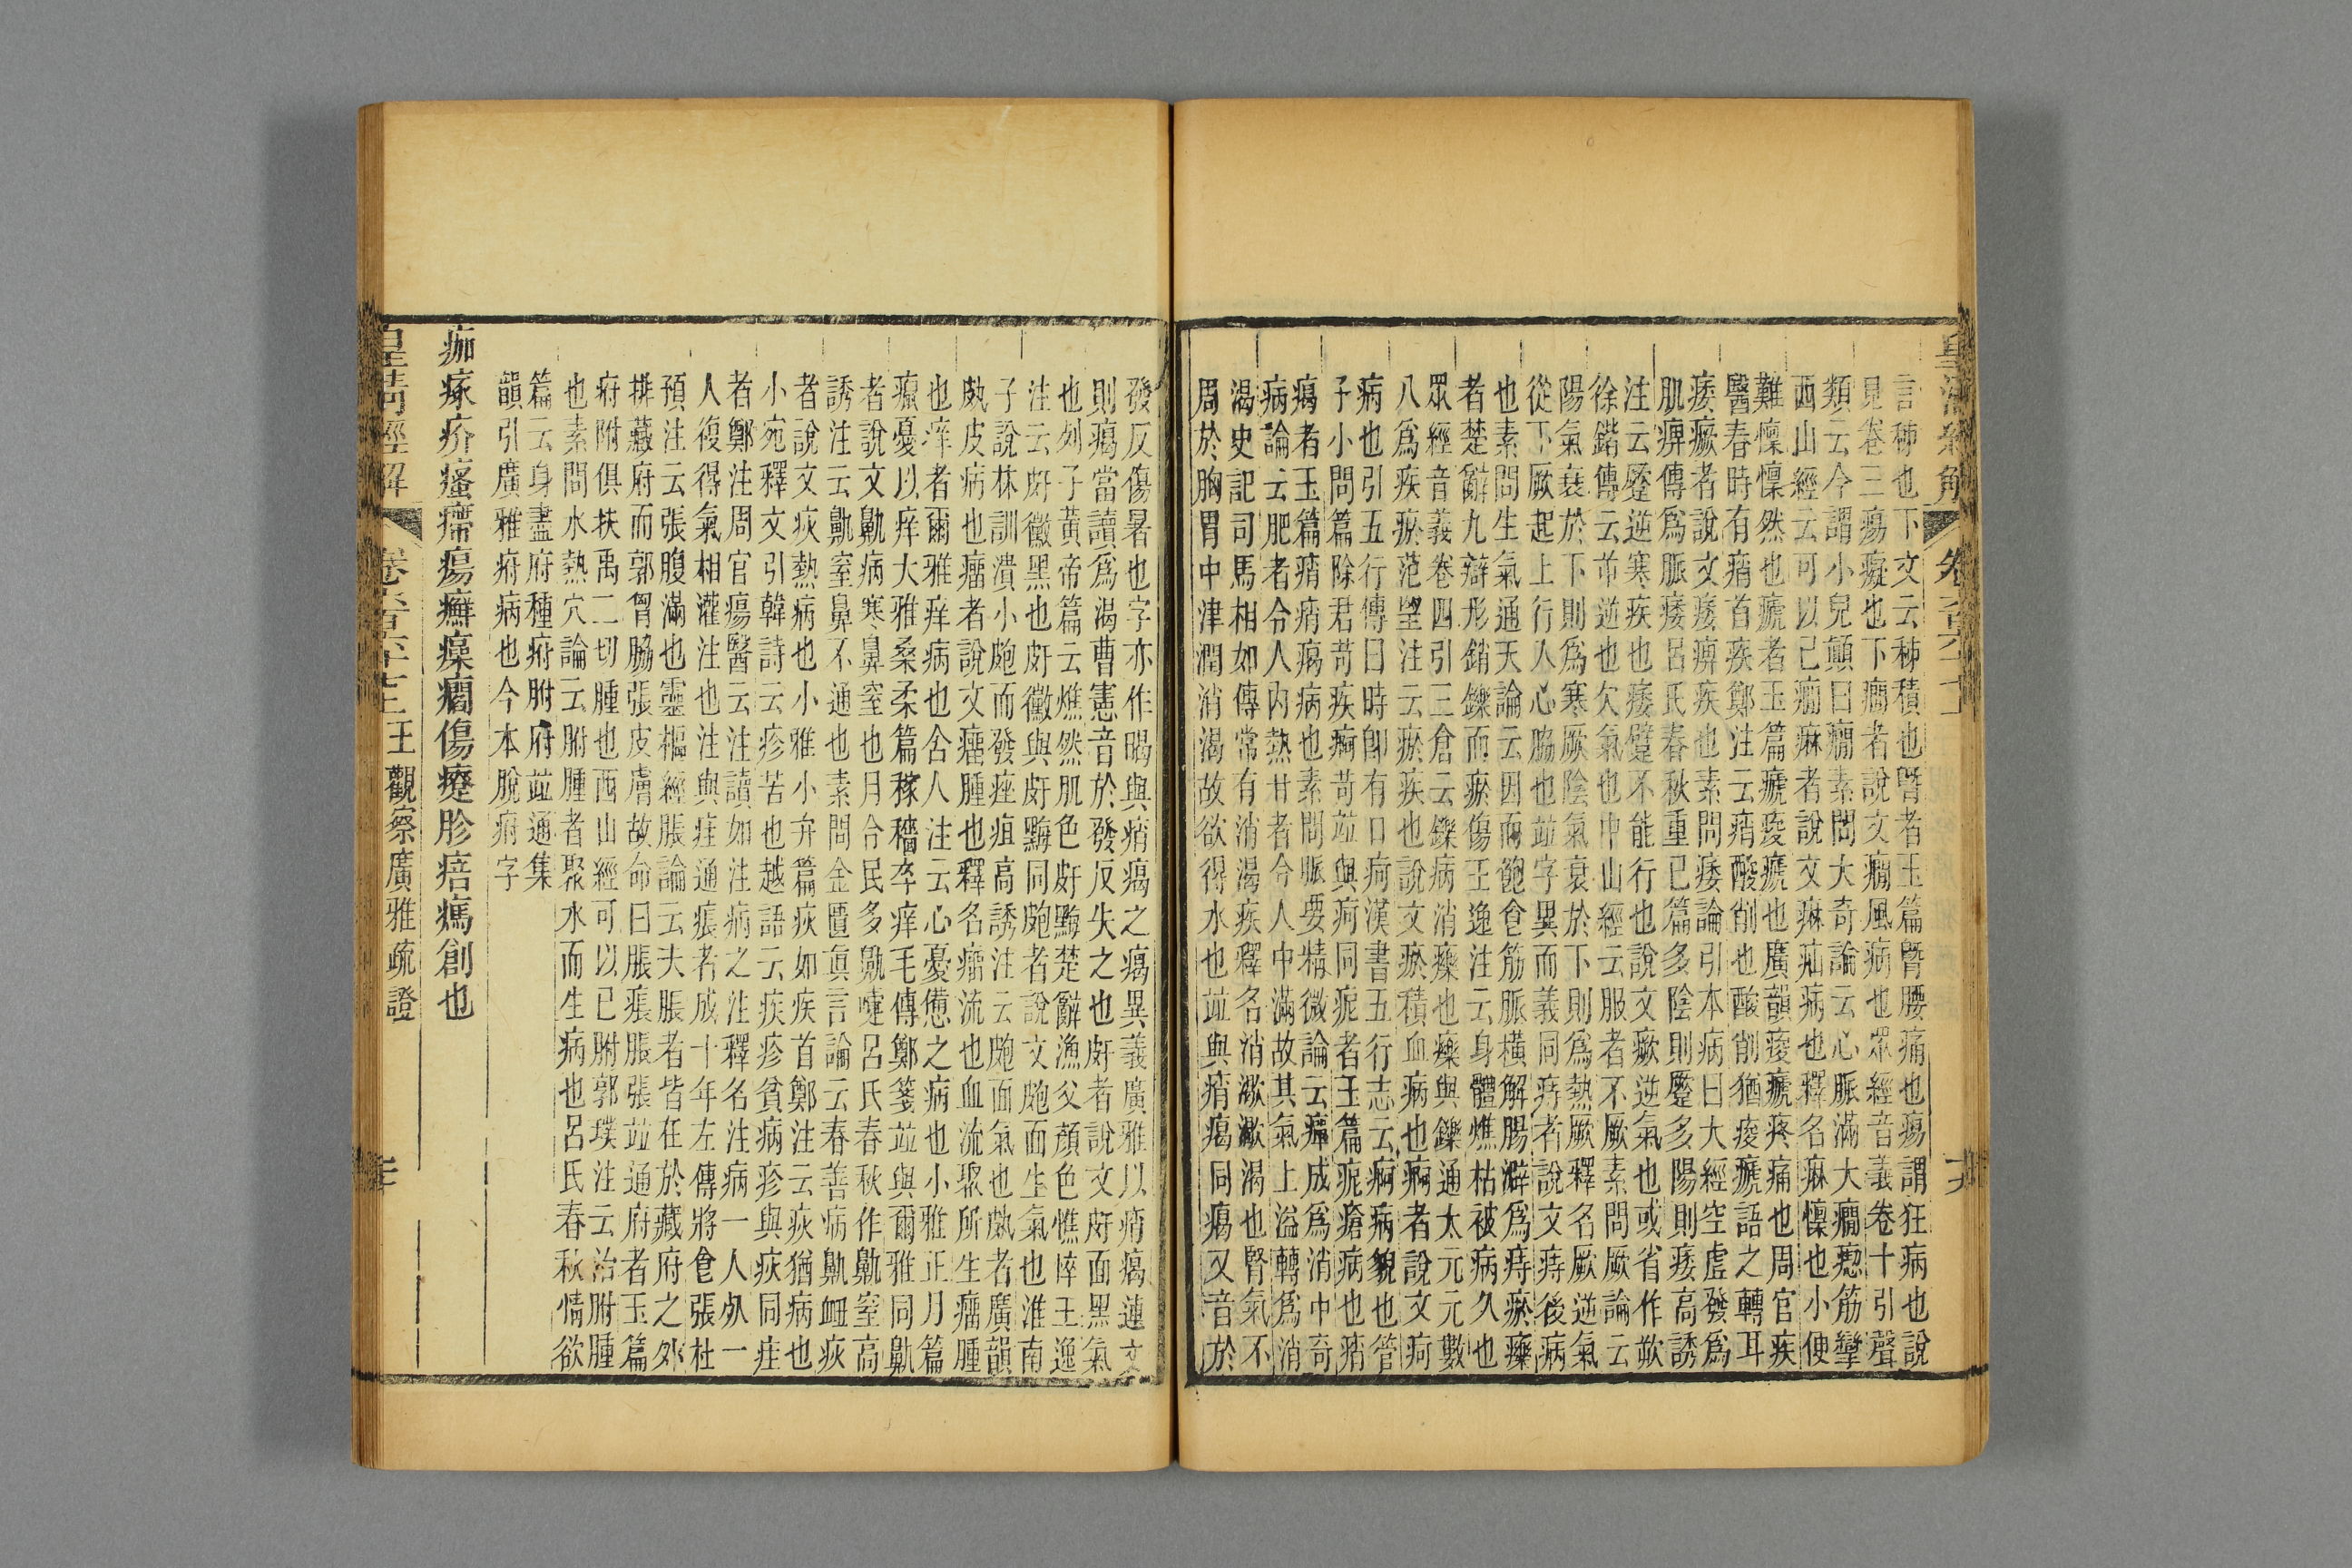 皇清經解 卷六百六十七 大
言稀也下文云稀積也暨者玉篇暨腰痛也瘍謂狂病也說
見卷三瘍癡也下癇者說文癇風病也眾經音義卷十引聲
類云今謂小兒顛曰癇素問大奇論云心脈滿大癇瘛筋攣
西山經云可以已癇痳者說文痳疝病也釋名痳懍也小便
難懍懍然也瘯者玉篇瘯痠瘯也廣韻痠瘯疼痛也周官疾
醫春時有痟首疾鄭注云痟酸削也酸削猶痠瘯語之轉耳
痿瘚者說文痿痹疾也素問痿論引本病曰大經空虛發為
肌痹傳為脈痿呂氏春秋重已篇多陰則蹷多陽則痿高誘
注云蹷逆寒疾也痿躄不能行也說文瘚逆氣也或省作欮
徐鍇傳云芇逆也欠氣也中山經云服者不厥素問厥論云
陽氣衰於下則為寒厥陰氣衰於下則為熱厥釋名厥逆氣
從下厥起上行人心脇也竝字異而義同痔者說文痔後病
也素問生氣通天論云因而飽食筋脈橫解腸澼為痔瘀㿉
者楚辭九辯形銷鑠而瘀傷王逸注云身體燋枯被病久也
眾經音義卷四引三倉云鑠病消㿉也㿉與鑠通太元元數
八為疾瘀范望注云瘀疾也說文瘀積血病也痾者說文痾
病也引五行傳曰時卽有口痾漢書五行志云痾病貌也管
子小問篇除君苛疾痾苛竝與痾同痆者玉篇痆瘡病也痟
瘍者玉篇痟痟瘍病也素問脈要精微論云癉成為消中奇
病論云肥者令人內熱甘者令人中滿故其氣上溢轉為消
渴史記司馬相如傳常有消渴疾釋名消㵣㵣渴也腎氣不
周於胸胃中津潤消渴故欲得水也竝與痟㾛同㾛又音於
發反傷暑也字亦作暍與痟㾛之㾛異義廣雅以痟㾛連文
則㾛當讀為渴曹憲音於發反失之也皯者說文皯面黑氣
也列子黃帝篇云燋然肌色皯黣楚辭漁父顏色憔悴王逸
注云皯黴黑也皯黴與皯黣同皰者說文皰面生氣也淮南
子說林訓潰小皰而發痤疽高誘注云皰面氣也㿺者廣韻
㿺皮病也瘤者說文瘤腫也釋名瘤流也血流聚所生瘤腫
也痒者爾雅痒病也舍人注云心憂憊之病也小雅正月篇
癙憂以痒大雅桑柔篇稼穡卒痒毛傳鄭箋竝與爾雅同鼽
者說文鼽病寒鼻窒也月令民多鼽嚏呂氏春秋作鼽窒高
誘注云鼽窒鼻不通也素問金匱真言論云春善病鼽衄疢
者說文疢熱病也小雅小弁篇疢如疾首鄭注云疢猶病也
小宛釋文引韓詩云疹苦也越語云疾疹貧病疹與疢同疰
者鄭注周官瘍醫云注讀如注病之注釋名注病一人死一
人復得氣相灌注也注與疰通瘬者成十年左傳將食張杜
預注云張腹滿也靈樞經脹論云夫脹者皆在於藏府之外
排藏府而郭胷脇張皮膚故命曰脹瘬脹張竝通府者玉篇
府附俱扶禹二切腫也西山經可以已胕郭璞注云治胕腫
也素問水熱穴論云胕腫者聚水而生病也呂氏春秋情欲
篇云身盡府種府胕府竝通集
韻引廣雅府病也今本脫府字
痂瘃疥瘙㿃瘍癬㿋癎傷癧胗㾦㾺創也
皇清經解 卷六百六十七 王觀察廣雅疏證